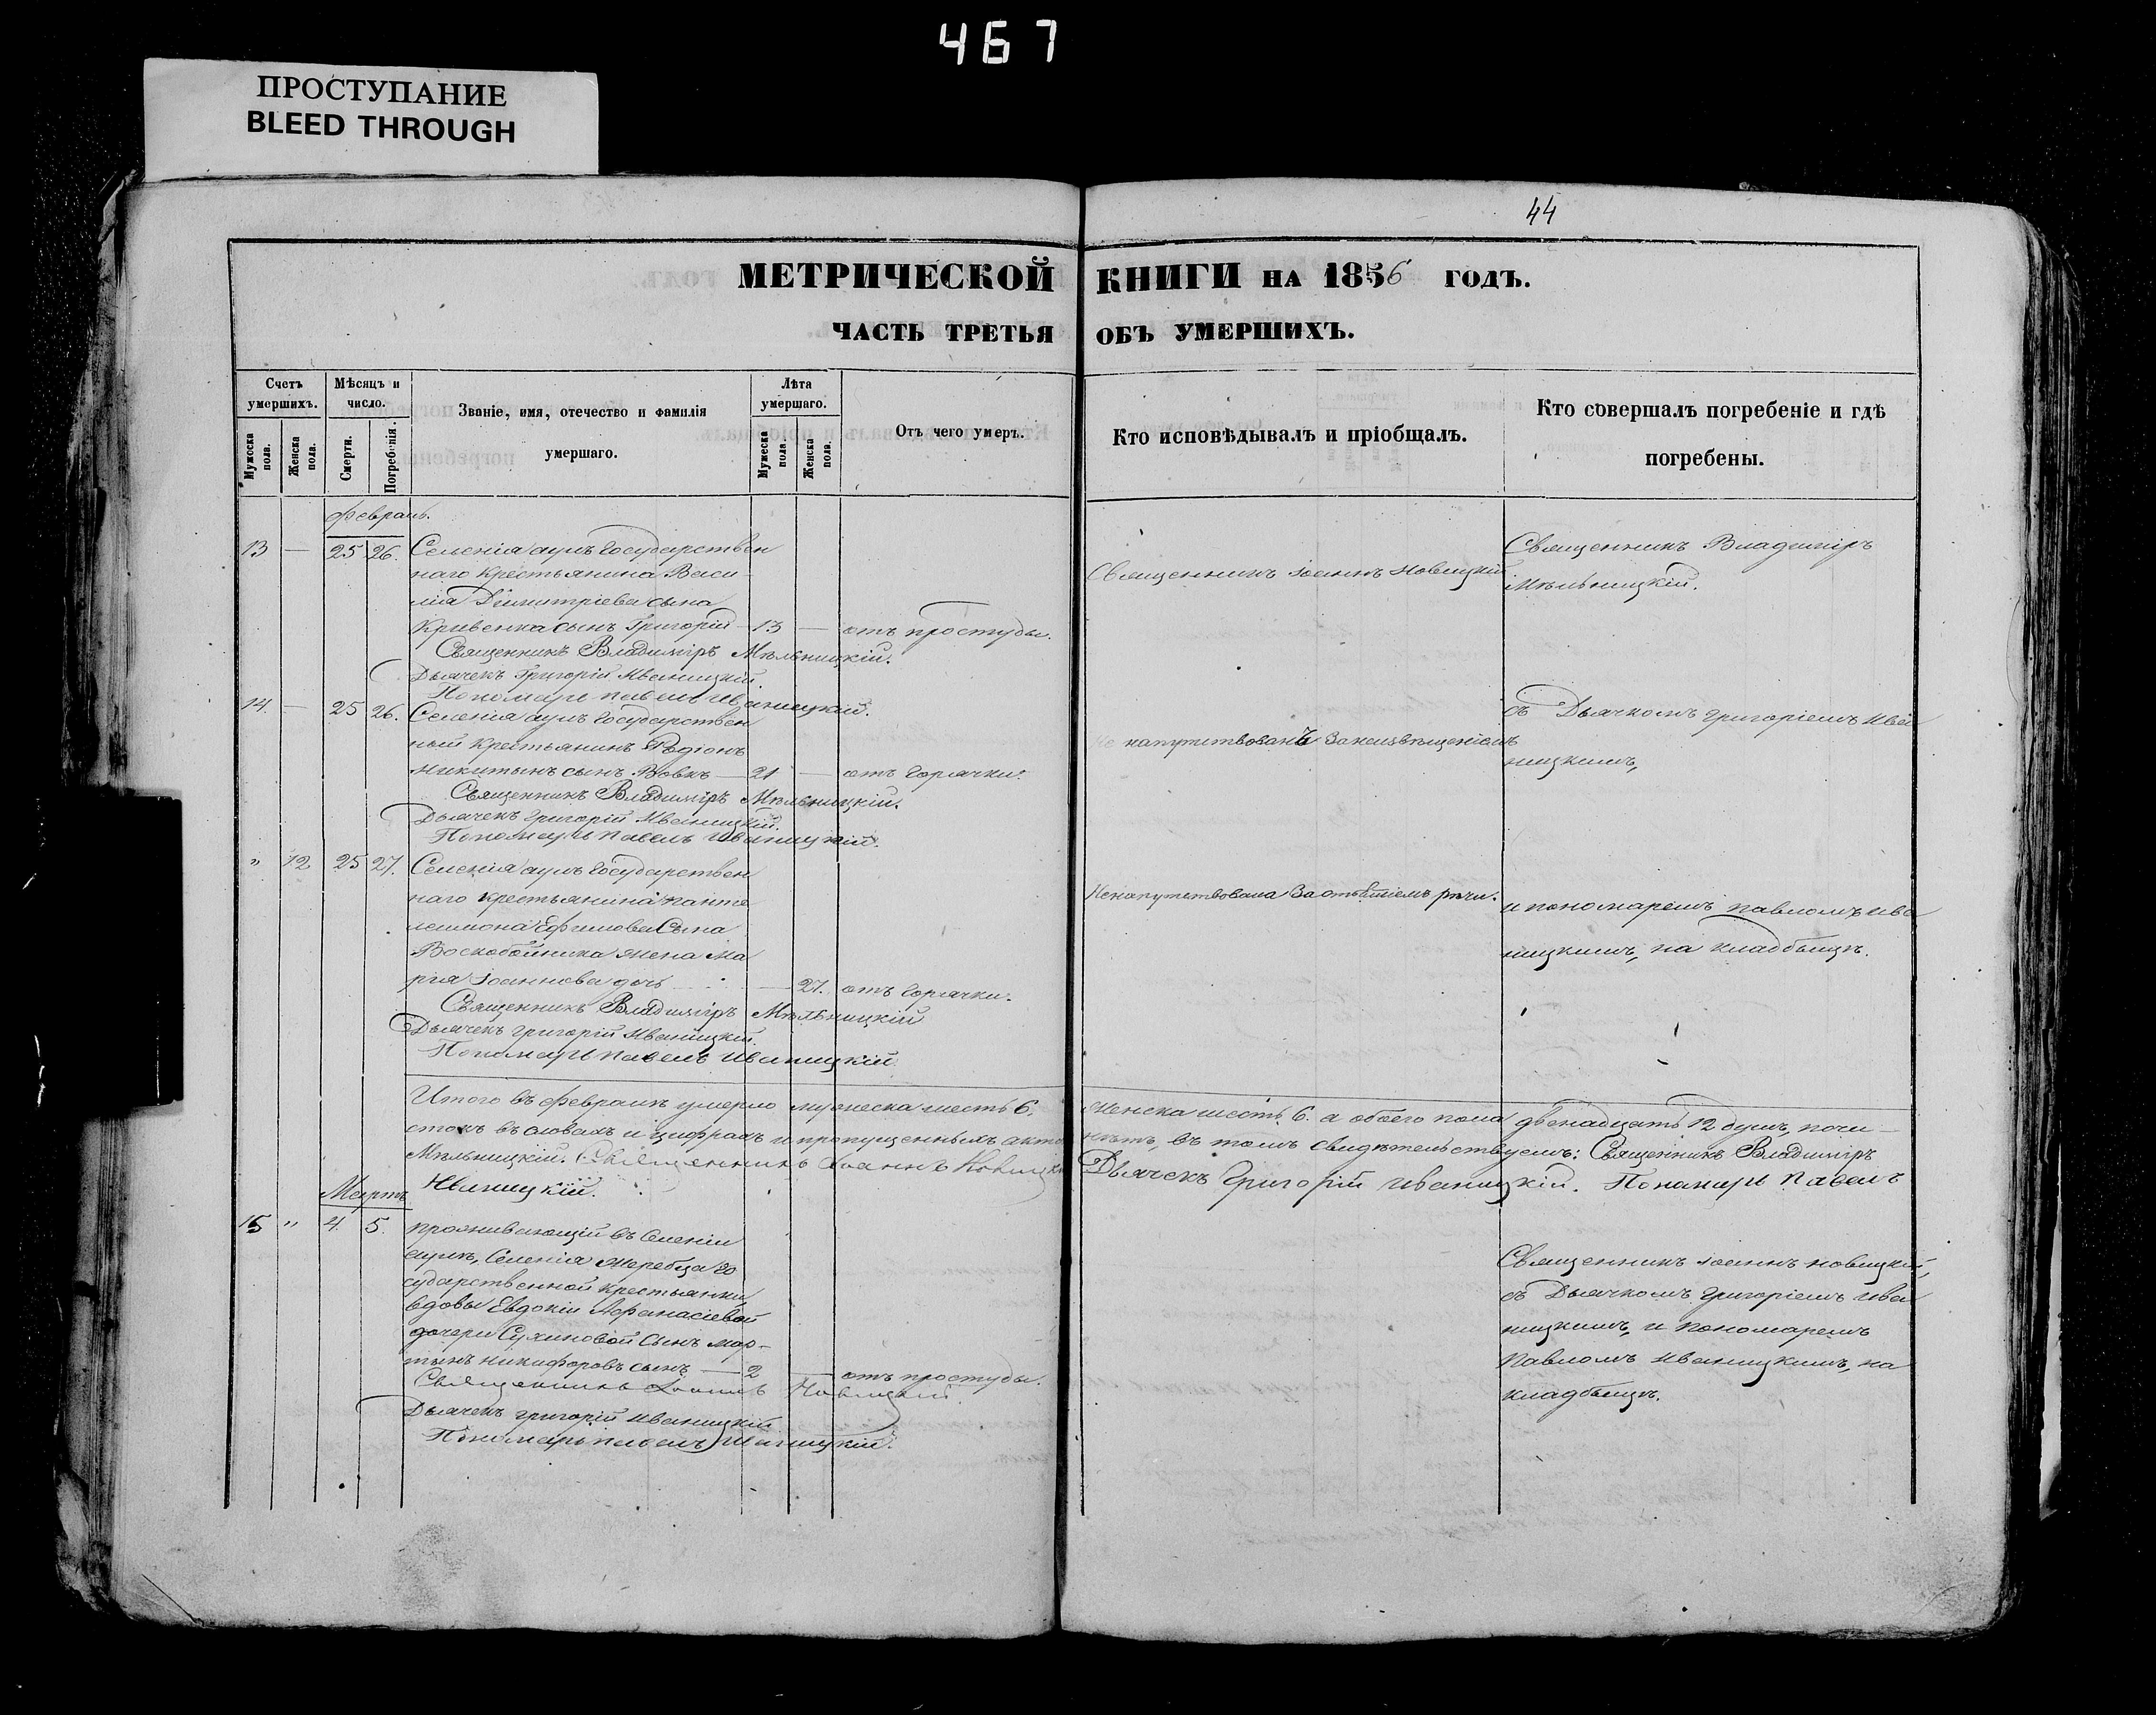 467
ПРОСТУПАНИЕ
BLEED THROUGH
44
МЕТРИЧЕСКОЙ КНИГИ НА 1856 ГОДЪ.
ЧАСТЬ ТРЕТЬЯ ОБЪ УМЕРШИХЪ.
Счетъ умершихъ.
Мужеска пола.
Женска пола.
Мѣсяцъ и число.
Смерти.
Погребенія.
Званіе, имя, отечество и фамилія умершаго.
Лѣта умершаго.
Мужеска пола
Женска пола.
Отъ чего умеръ.
Кто исповѣдывалъ и пріобщалъ.
Кто совершалъ погребеніе и гдѣ погребены.
Февраль.
13 — 25 26. Селенія аулъ Государствен
наго крестьянина Васи-
лія Димитріева сына
Кривенка сынъ Григорій — 13 — отъ простуды.
Священникъ Іоаннъ Новицкій
Священникъ Владиміръ
Мѣльницкій.
Священникъ Владиміръ Мѣльницкій.
Дьячекъ Григорій Иваницкій.
Пономарь Павелъ Иваницкій.
14. — 25 26. Селенія аулъ Государствен
ный крестьянинъ Родіонъ
Никитинъ сынъ Вовкъ — 21 — отъ горячки.
напутствованъ за неизвѣщеніемъ
съ Дьячкомъ Григоріемъ Ива
ницкимъ,
Священникъ Владиміръ Мѣльницкій.
Дьячекъ Григорій Иваницкій.
Пономарь Павелъ Иваницкій.
" 12 25 27. Селенія аулъ Государствен
наго крестьянина Панте
леимона Ефимова Сына
Воскобойника жена Ма
рія Іоаннова дочь — 27. отъ горячки.
Ненапутствована за отъятіемъ рѣчи.
и пономаремъ Павломъ Ива
ницкимъ, на кладбищѣ.
Священникъ Владиміръ Мѣльницкій
Дьячекъ Григорій Иваницкій.
Пономарь Павелъ Иваницкій
Итого въ Февралѣ умерло мужеска шесть 6. женска шесть 6. а обоего пола двенадцать 12 душъ, почи-
стокъ въ словахъ и цифрахъ и пропущенныхъ акто нѣтъ, въ томъ свидѣтельствуемъ: Священникъ Владиміръ
Мѣльницкій. Священникъ Іоаннъ Новицкій Дьячекъ Григорій Иваницкій. Пономарь Павелъ
Иваницкій.
Мартъ
15 " 4. 5. проживающій въ Селеніи
аулѣ, Селенія Жеребца го
сударственной крестьянки
вдовы Евдокіи Афанасіевой
дочери Сухиновой сынъ Мар-
тынъ Никифоровъ сынъ — 2 — отъ простуды.
Священникъ Іоаннъ Новицкій,
съ Дьячкомъ Григоріемъ Ива
ницкимъ, и Пономаремъ
Павломъ Иваницкимъ, на
кладбищѣ.
Священникъ Іоаннъ Новицкій.
Дьячекъ Григорій Иваницкій
Пономарь Павелъ Иваницкій.